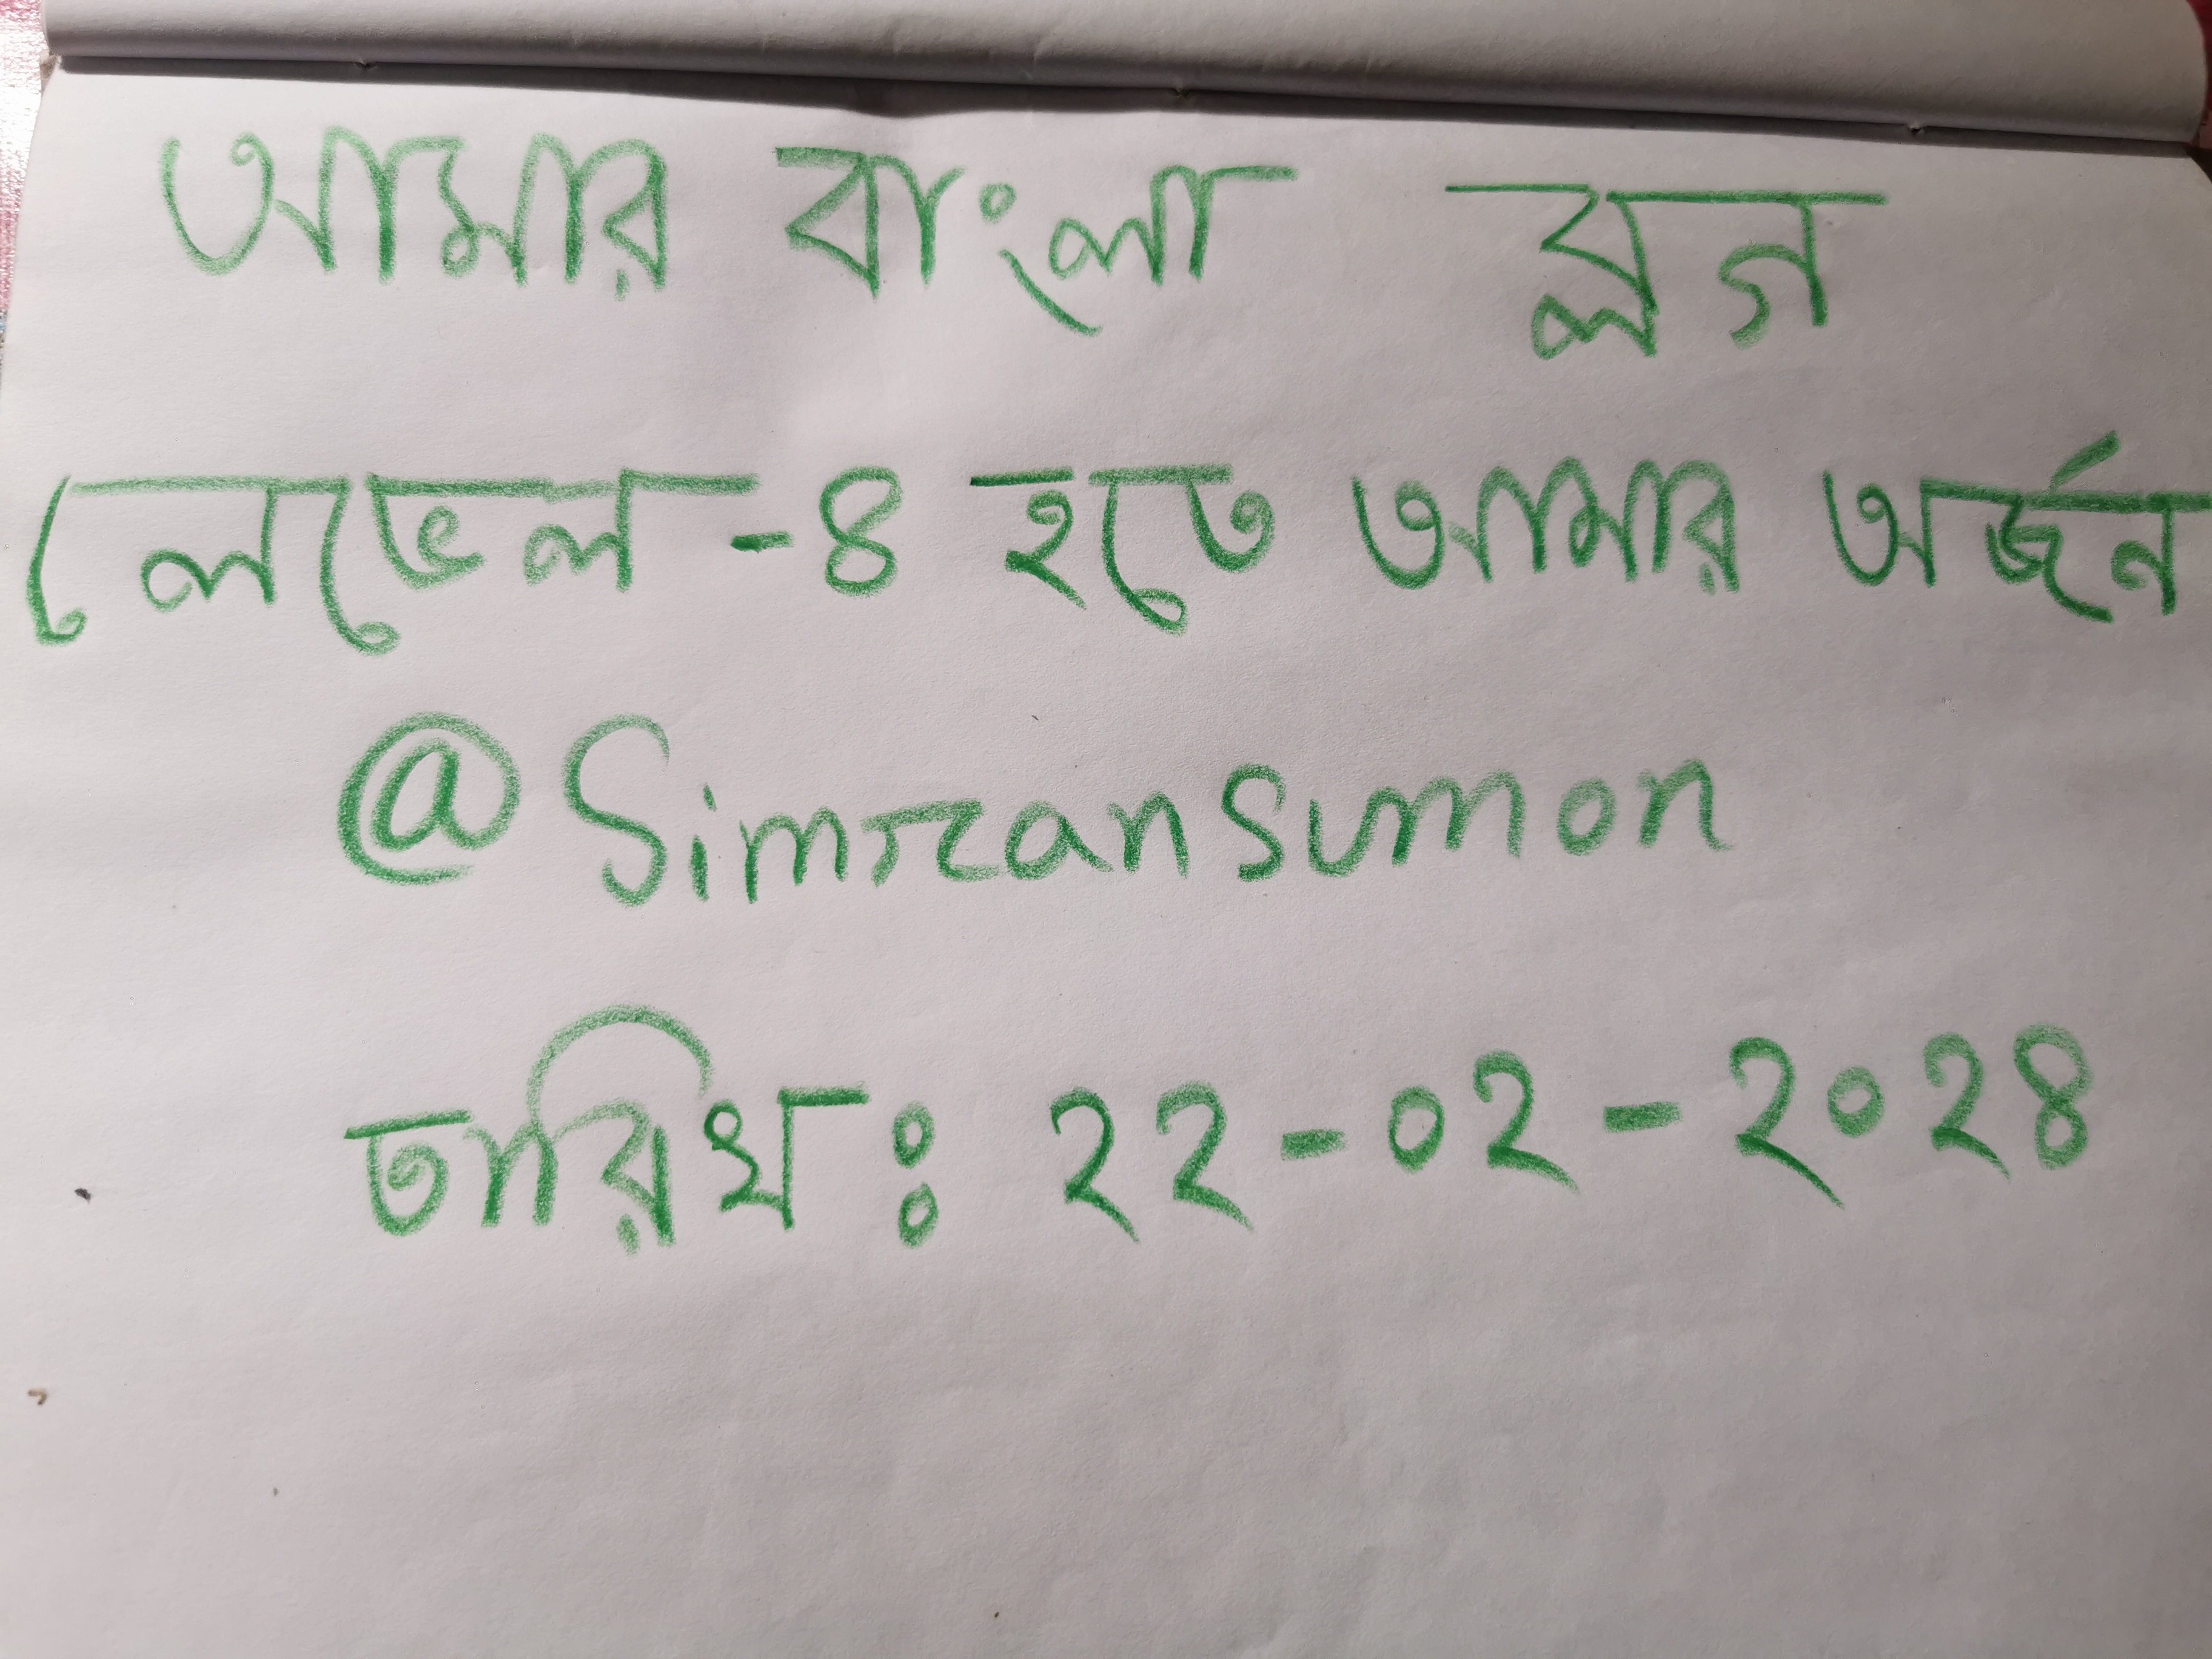 আমার বাংলা ব্লগ
লেভেল-৪ হতে আমার অর্জন
@Simransumon
তারিখঃ ২২-০২-২০২৪